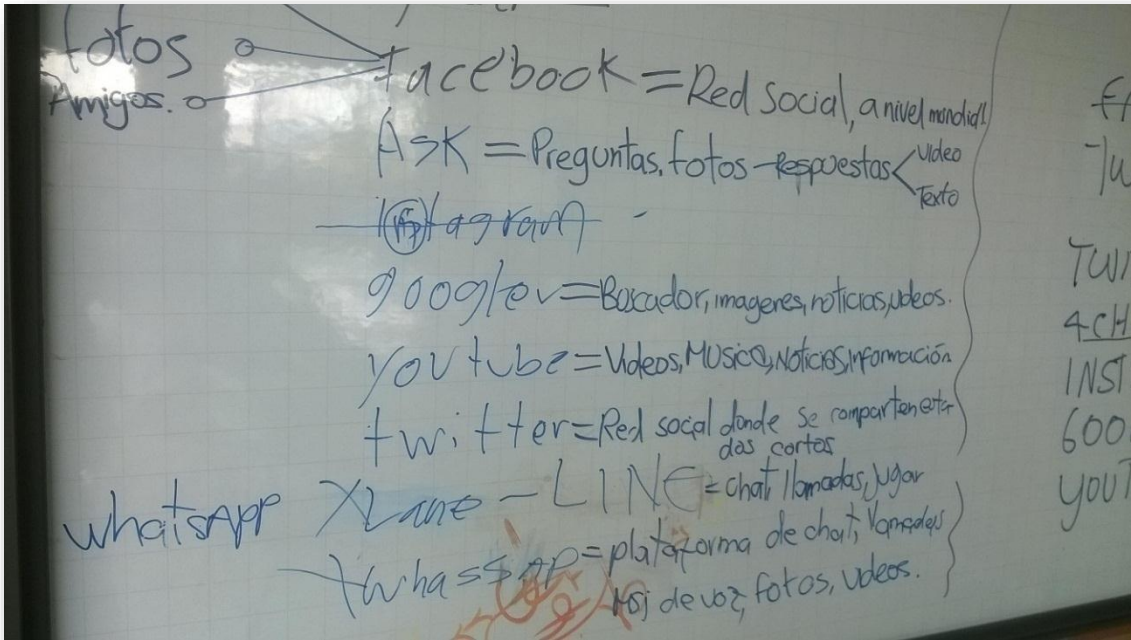 fotos
Amigos.
facebook = Red social, a nivel mundial
ASK = Preguntas, fotos - Respuestas < video
Texto
instagram
googlev = Boscador, imagenes, noticias, videos.
youtube = Videos, MUSICA, Noticias, Información
twitter = Red social donde se comparten esta-
dos cortos
whatsApp XLane - LINE = chat, llamadas, jugar
twhassap = plataforma de chat, llamadas
de voz, fotos, videos.
TWI
4CH
INST
600
YOUT